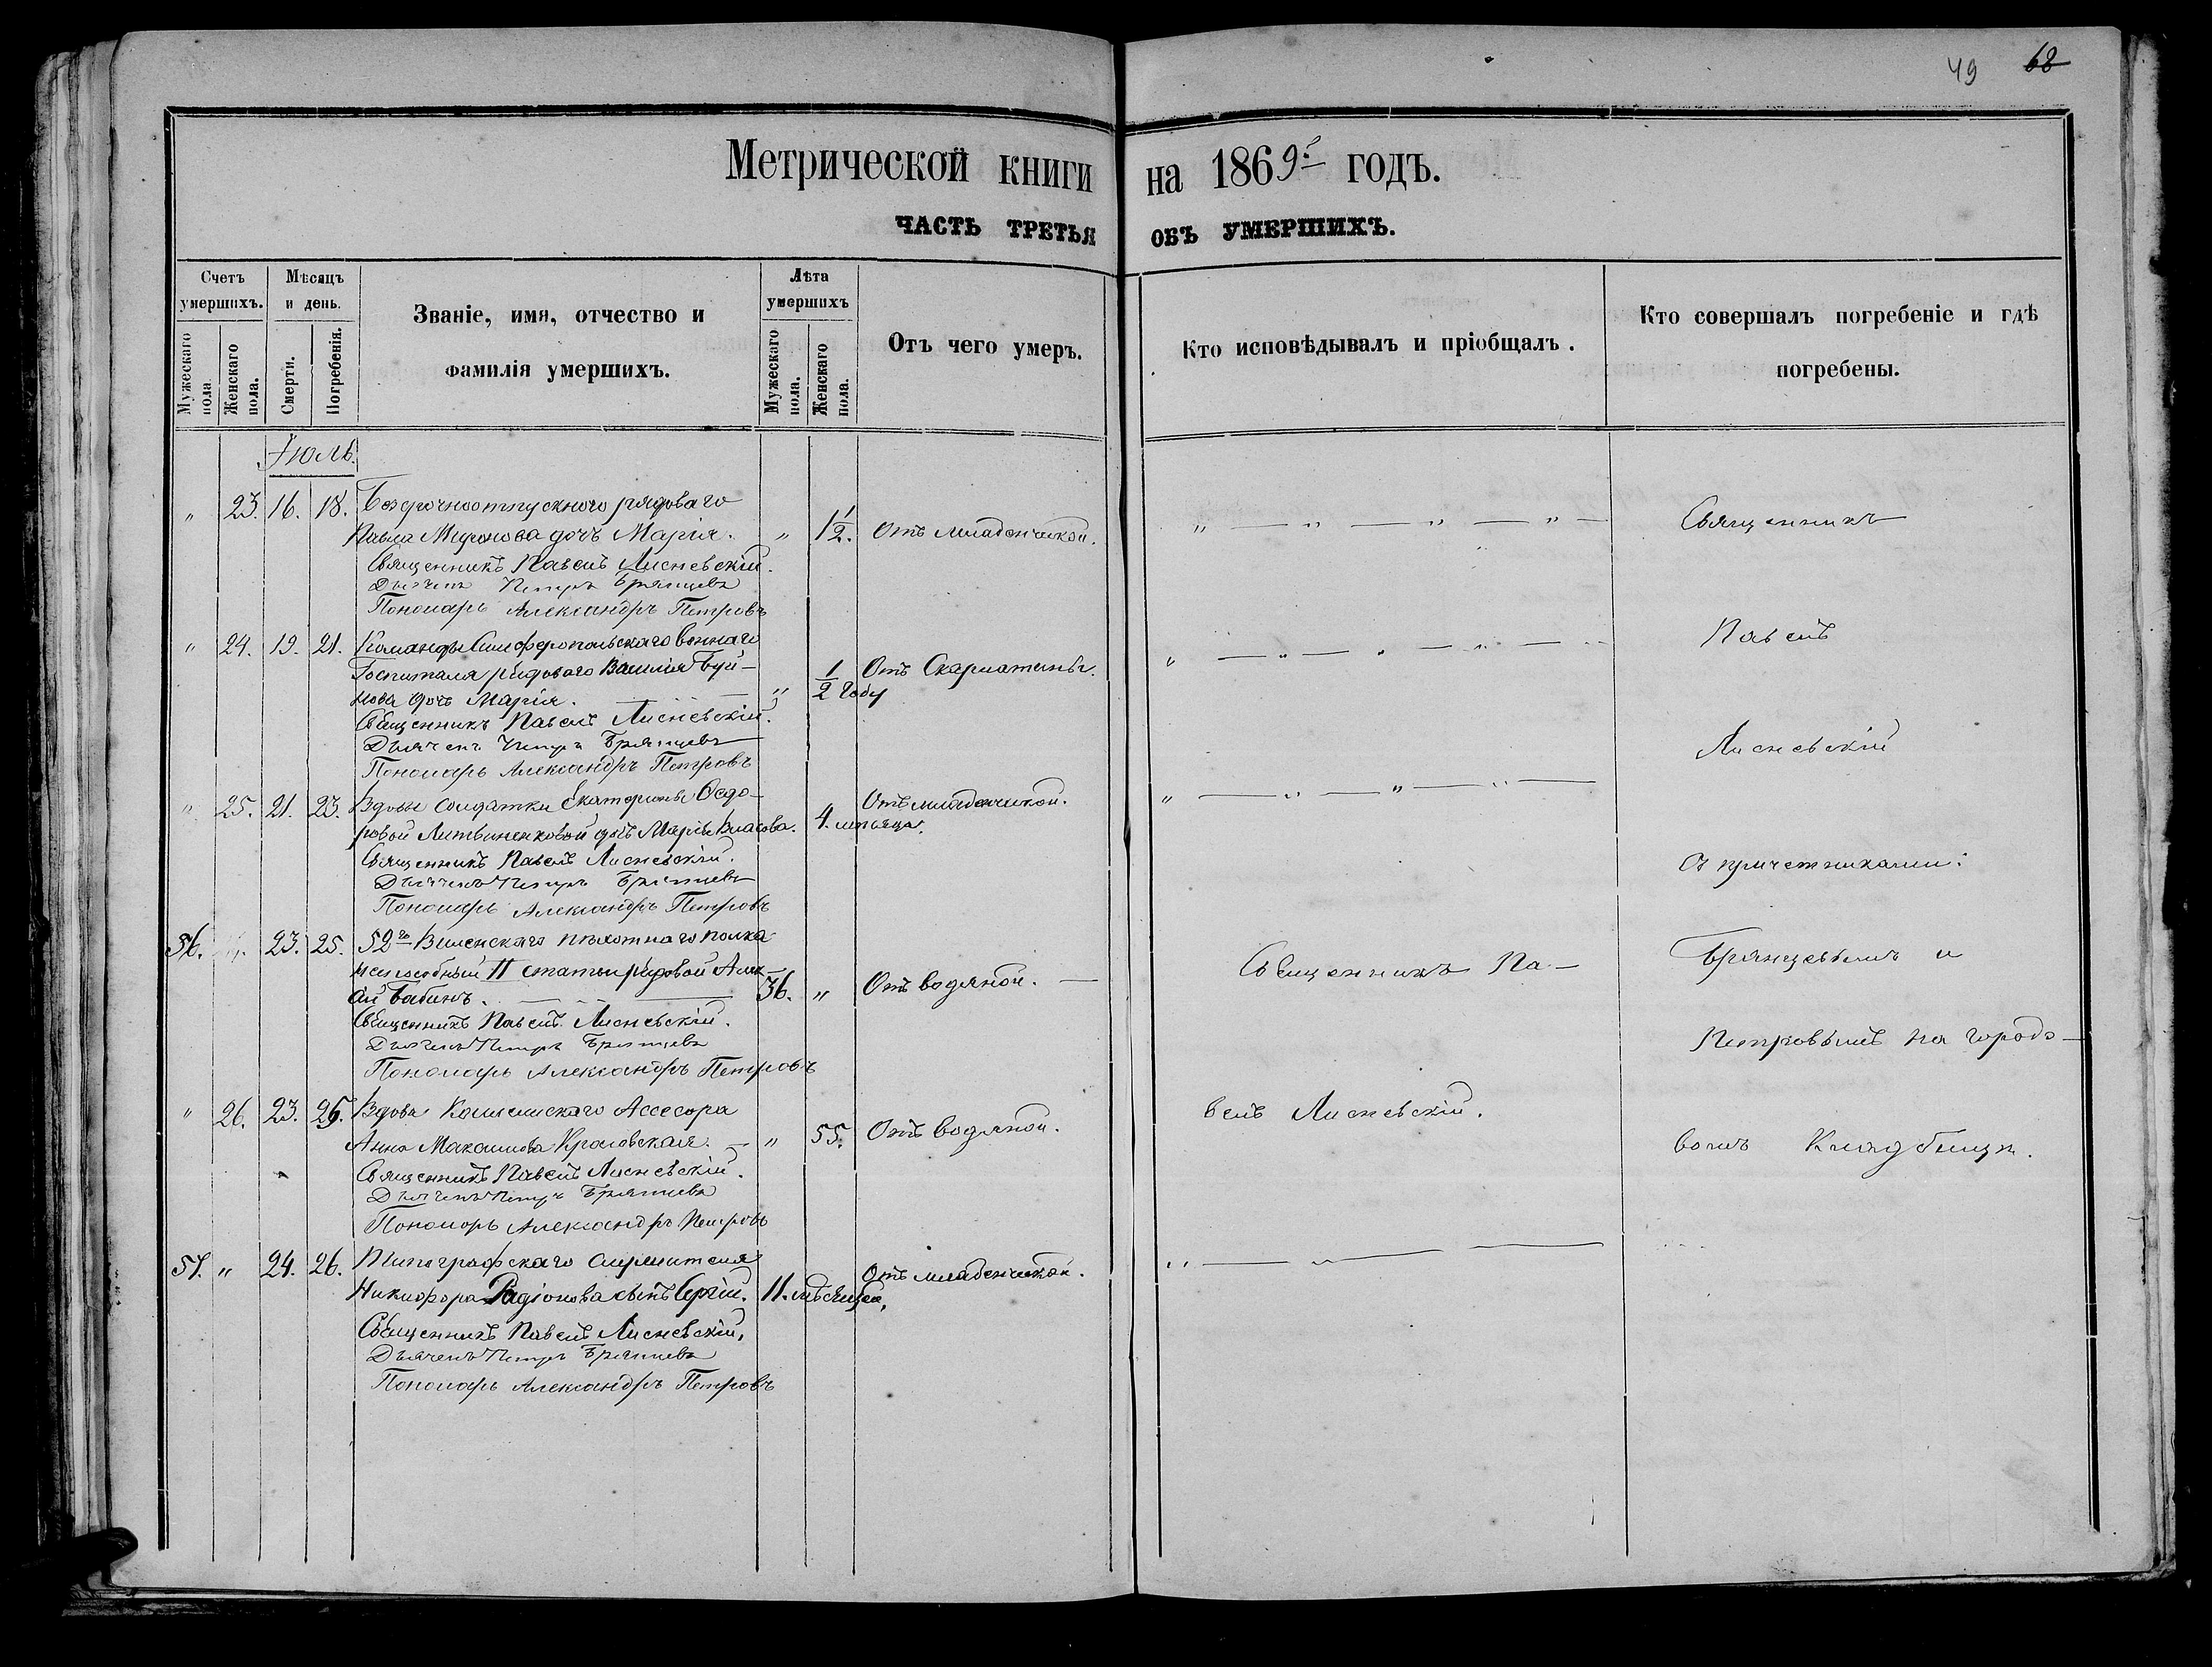 49 68
Метрической книги на 1869й годъ.
ЧАСТЬ ТРЕТЬЯ ОБЪ УМЕРШИХЪ.
Счетъ умершихъ.
Мужескаго пола.
Женскаго пола.
Мѣсяцъ и день.
Смерти.
Погребенія.
Званіе, имя, отчество и
фамилія умершихъ.
Лѣта умершихъ
Мужескаго пола.
Женскаго пола.
Отъ чего умеръ.
Кто исповѣдывалъ и пріобщалъ.
Кто совершалъ погребеніе и гдѣ
погребены.
Іюль.
" 23. 16. 18. Безсрочноотпускного рядоваго
Павла Миронова дочь Марія. " 1½. Отъ младенческой.
Священникъ Павелъ Лисневскій.
Дьячекъ Петръ Брянцевъ
Пономарь Александръ Петровъ
" 24. 19. 21. Команды Симферопольскаго военнаго
Госпиталя рядового Василія Буй-
нова дочь Марія. " ½ году Отъ Скарлатины.
Священникъ Павелъ Лисневскій.
Дьячекъ Петръ Брянцевъ
Пономарь Александръ Петровъ
" 25. 21. 23. Вдовы солдатки Екатерины Ѳедо-
ровой Литвиненковой дочь Марія Власова. 4. мѣсяца. Отъ младенческой.
Священникъ Павелъ Лисневскій.
Дьячекъ Петръ Брянцевъ
Пономарь Александръ Петровъ
56. 23. 25. 52го Виленскаго пѣхотнаго полка
неспособный II статьи рядовой Алек-
ѣй Бабинъ. 36. " Отъ водяной.
Священникъ Павелъ Лисневскій.
Дьячекъ Петръ Брянцевъ
Пономарь Александръ Петровъ
" 26. 23. 25. Вдова Коллежскаго Ассесора
Анна Максимова " 55. Отъ водяной.
Священникъ Павелъ Лисневскій.
Дьячекъ Петръ Брянцевъ
Пономарь Александръ Петровъ
57. " 24. 26. Типографскаго служителя
Никифора Радіонова сынъ Сергій. 11. мѣсяцев. Отъ младенческой.
Священникъ Павелъ Лисневскій,
Дьячекъ Петръ Брянцевъ
Пономарь Александръ Петровъ
Священникъ Па-
велъ Лисневскій.
Священникъ
Павелъ
Лисневскій
съ причетниками:
Брянцевымъ и
Петровымъ на городо-
вомъ Кладбищѣ.